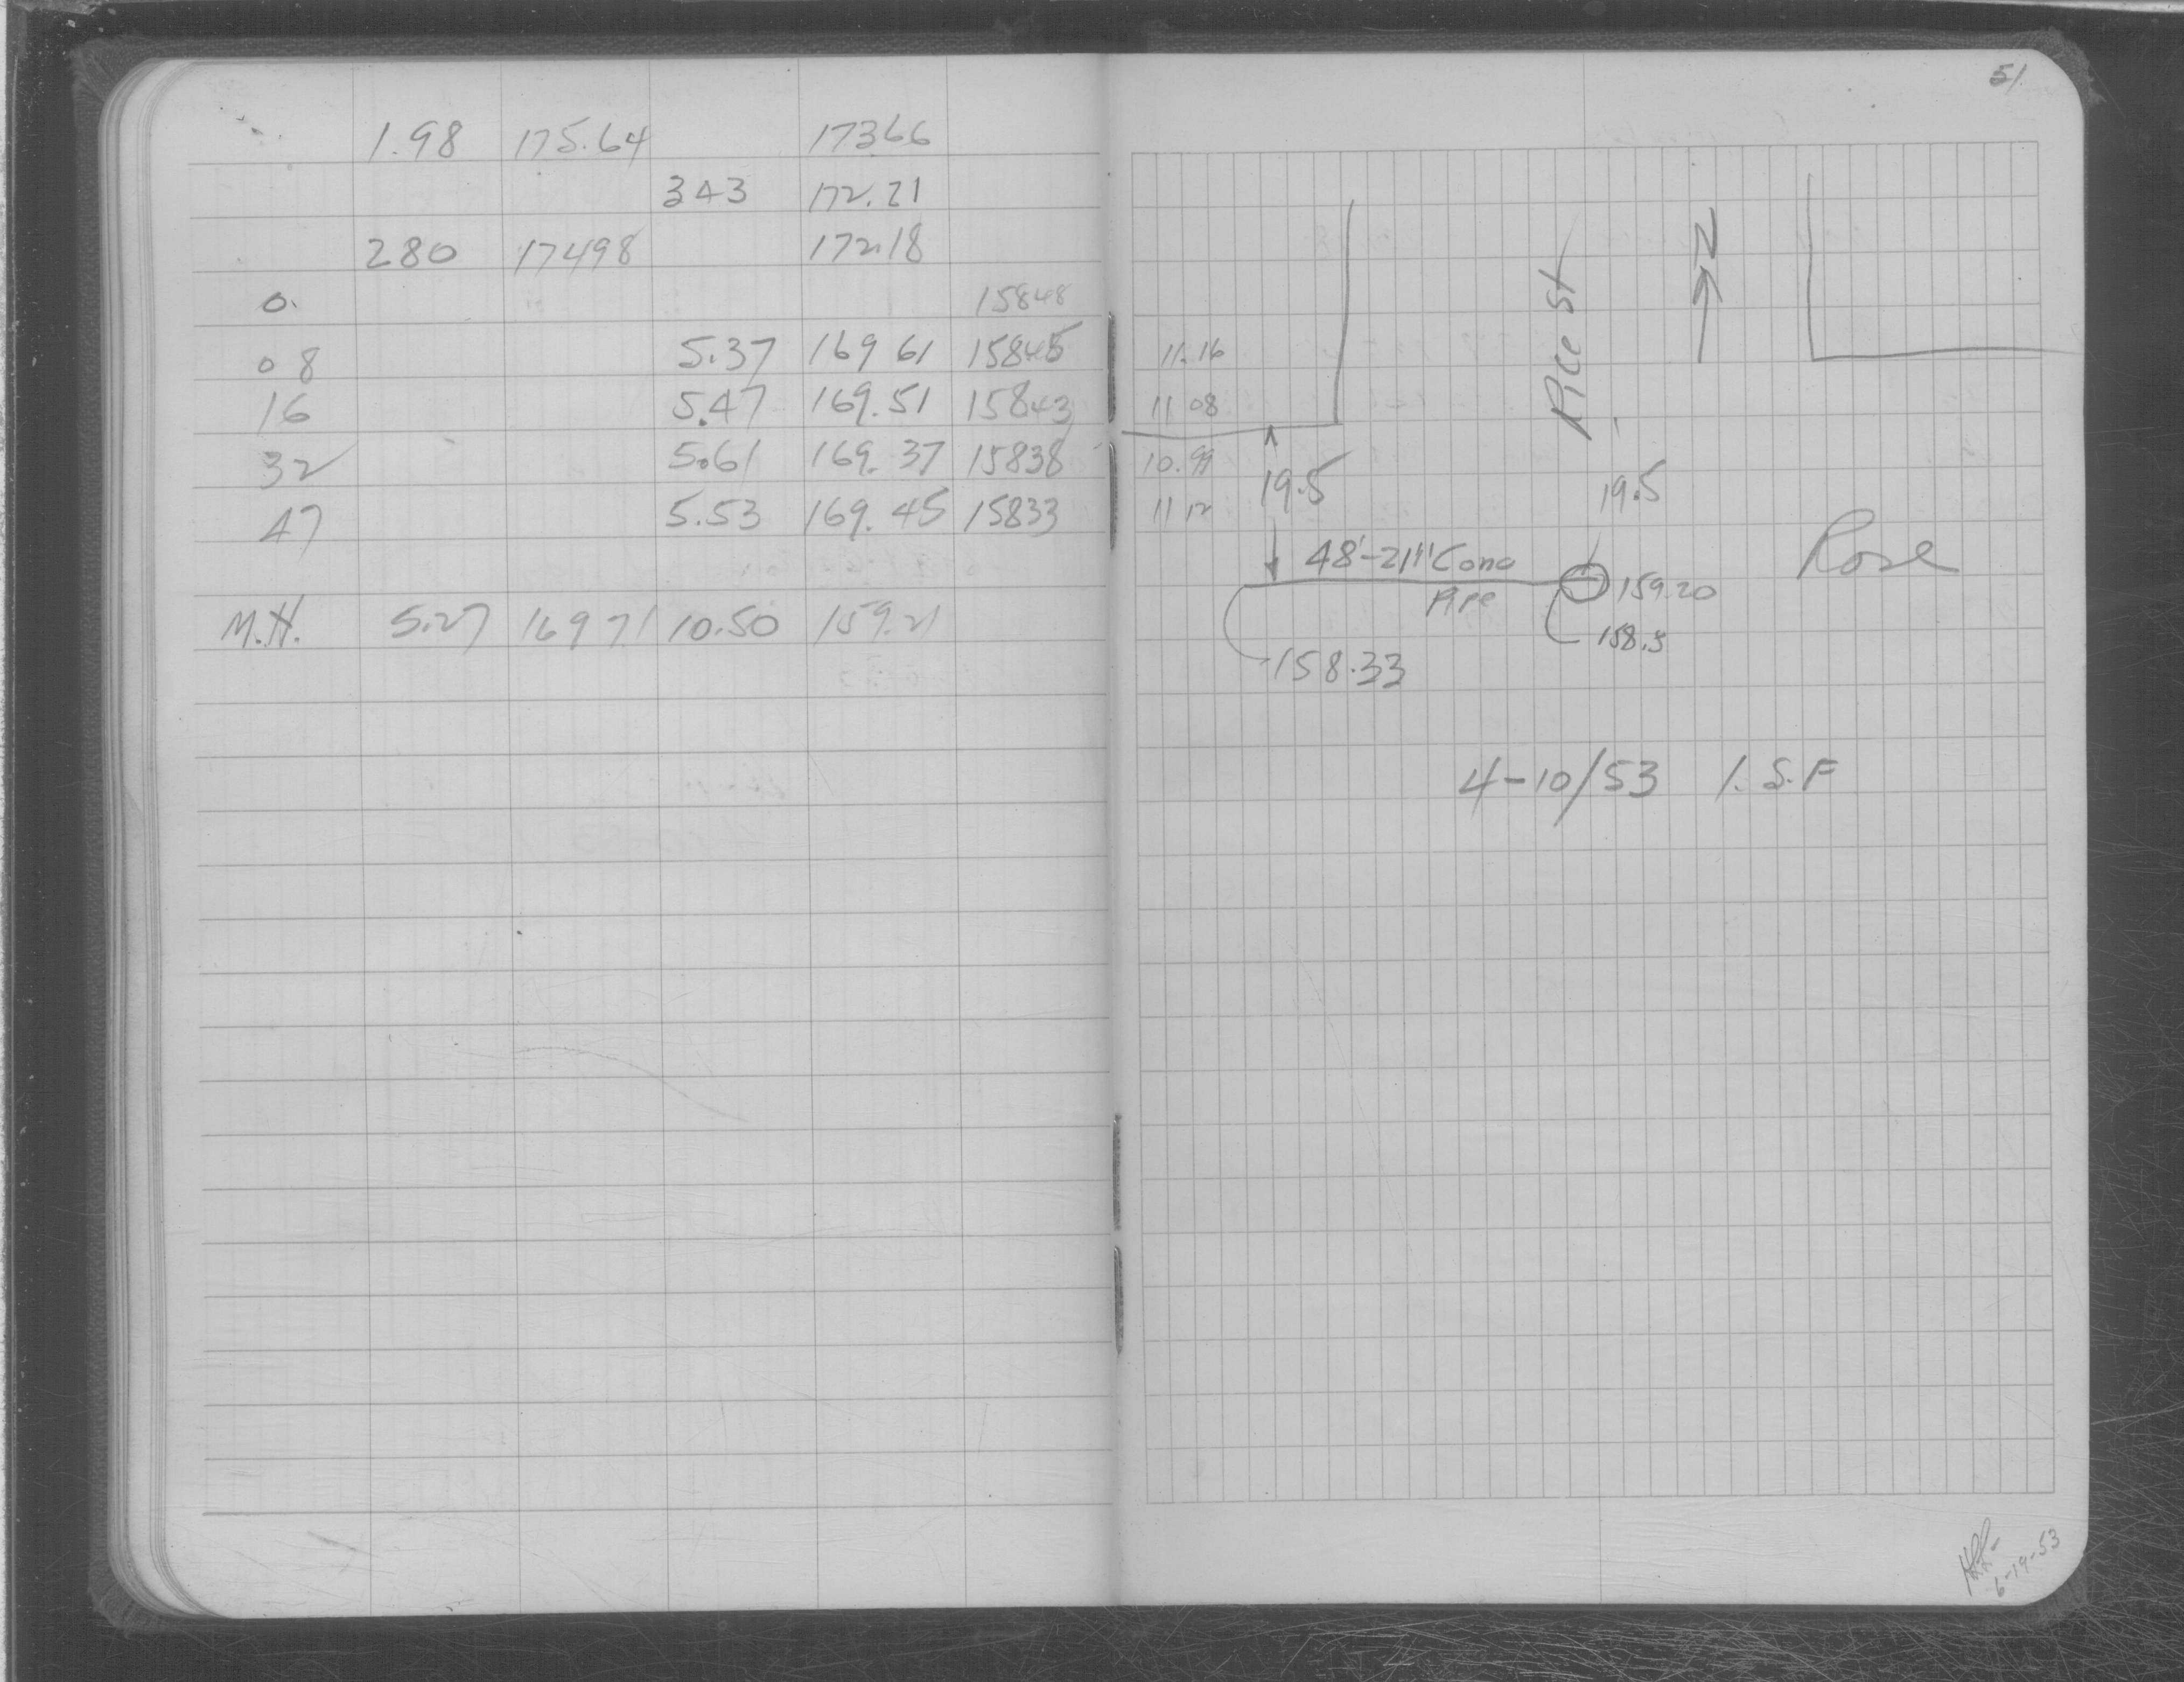 1.98 175.64 17366
343 172.21
280 17498 172.18
0. 15848
08 5.37 169 61 15845
16 5.47 169.51 15843
32 5.61 169.37 15838
47 5.53 169.45 15833
M.H. 5.27 169 71 10.50 159.21
51
N
Rice St
11.16
11 08
10.99
11 12
19.5
19.5
48'-21" Conc
Pipe
159.20
158.5
158.33
Rose
4-10/53 I.S.F
6-19-53